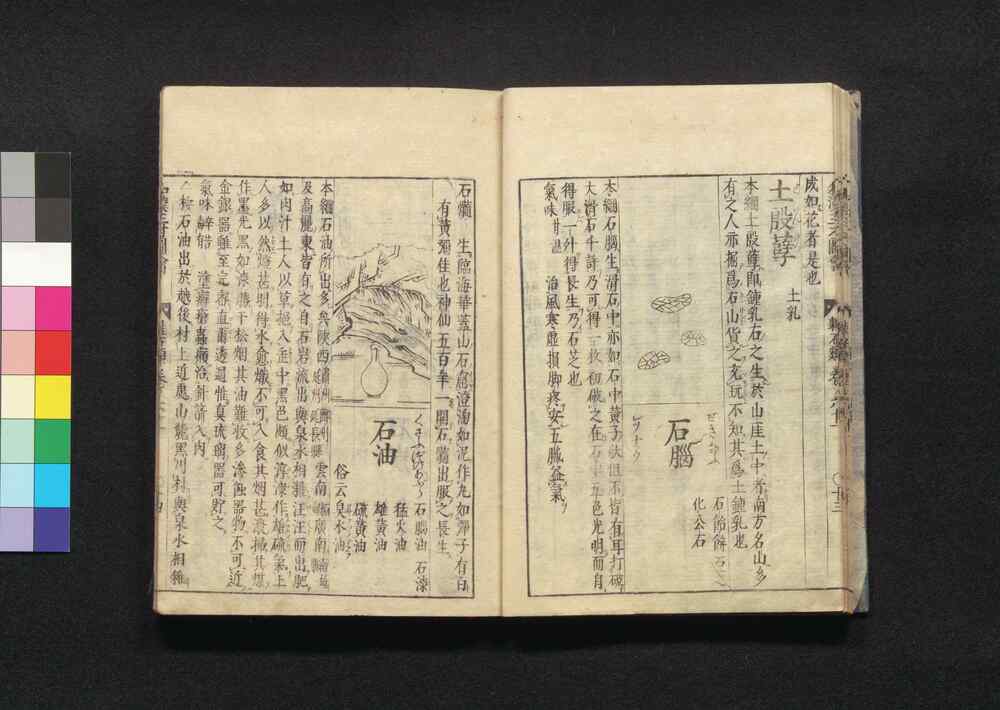 成如花者是也
土殷孽
土乳
本綱土殷孽即鍾乳石之生於山崖土中者南方名山多
有之人亦掘爲石山貨之充玩不知其爲土鍾乳也
石腦
石飴餅
化公石
本綱石腦生滑石中亦如石中黃子狀但不皆有耳打破
大滑石千許乃可得一枚初破之在石中五色光明而自
得服一升得長生乃石芝也
氣味甘温 治風寒虛損脚疼安五臟益氣
石髓 生臨海華蓋山石窟澄湧如泥作丸如彈子有白
有黃彌佳也神仙五百年一開石髓出服之長生
石油
石腦油 石漆
猛火油
雄黃油
硫黃油
俗云臭水油
本綱石油所出多矣陝西肅州 延州 延長縣 雲南 廣南 南
及高麗東皆有之自石岩流出與泉水相雜汪汪而出肥
如肉汁土人以草挹入缶中黑色頗似淳漆作雄硫氣土
人多以然燈甚明得水愈熾不可入食其烟甚濃掃其煤
作墨光黑如漆勝于松烟其油難收多滲蝕器物不可近
金銀器雖至完存直爾透過惟臭琉璃器可貯之
氣味辛苦 塗瘡癬蟲癩治針箭入肉
石油出於越後村上近處山能黑川村與泉水相雜